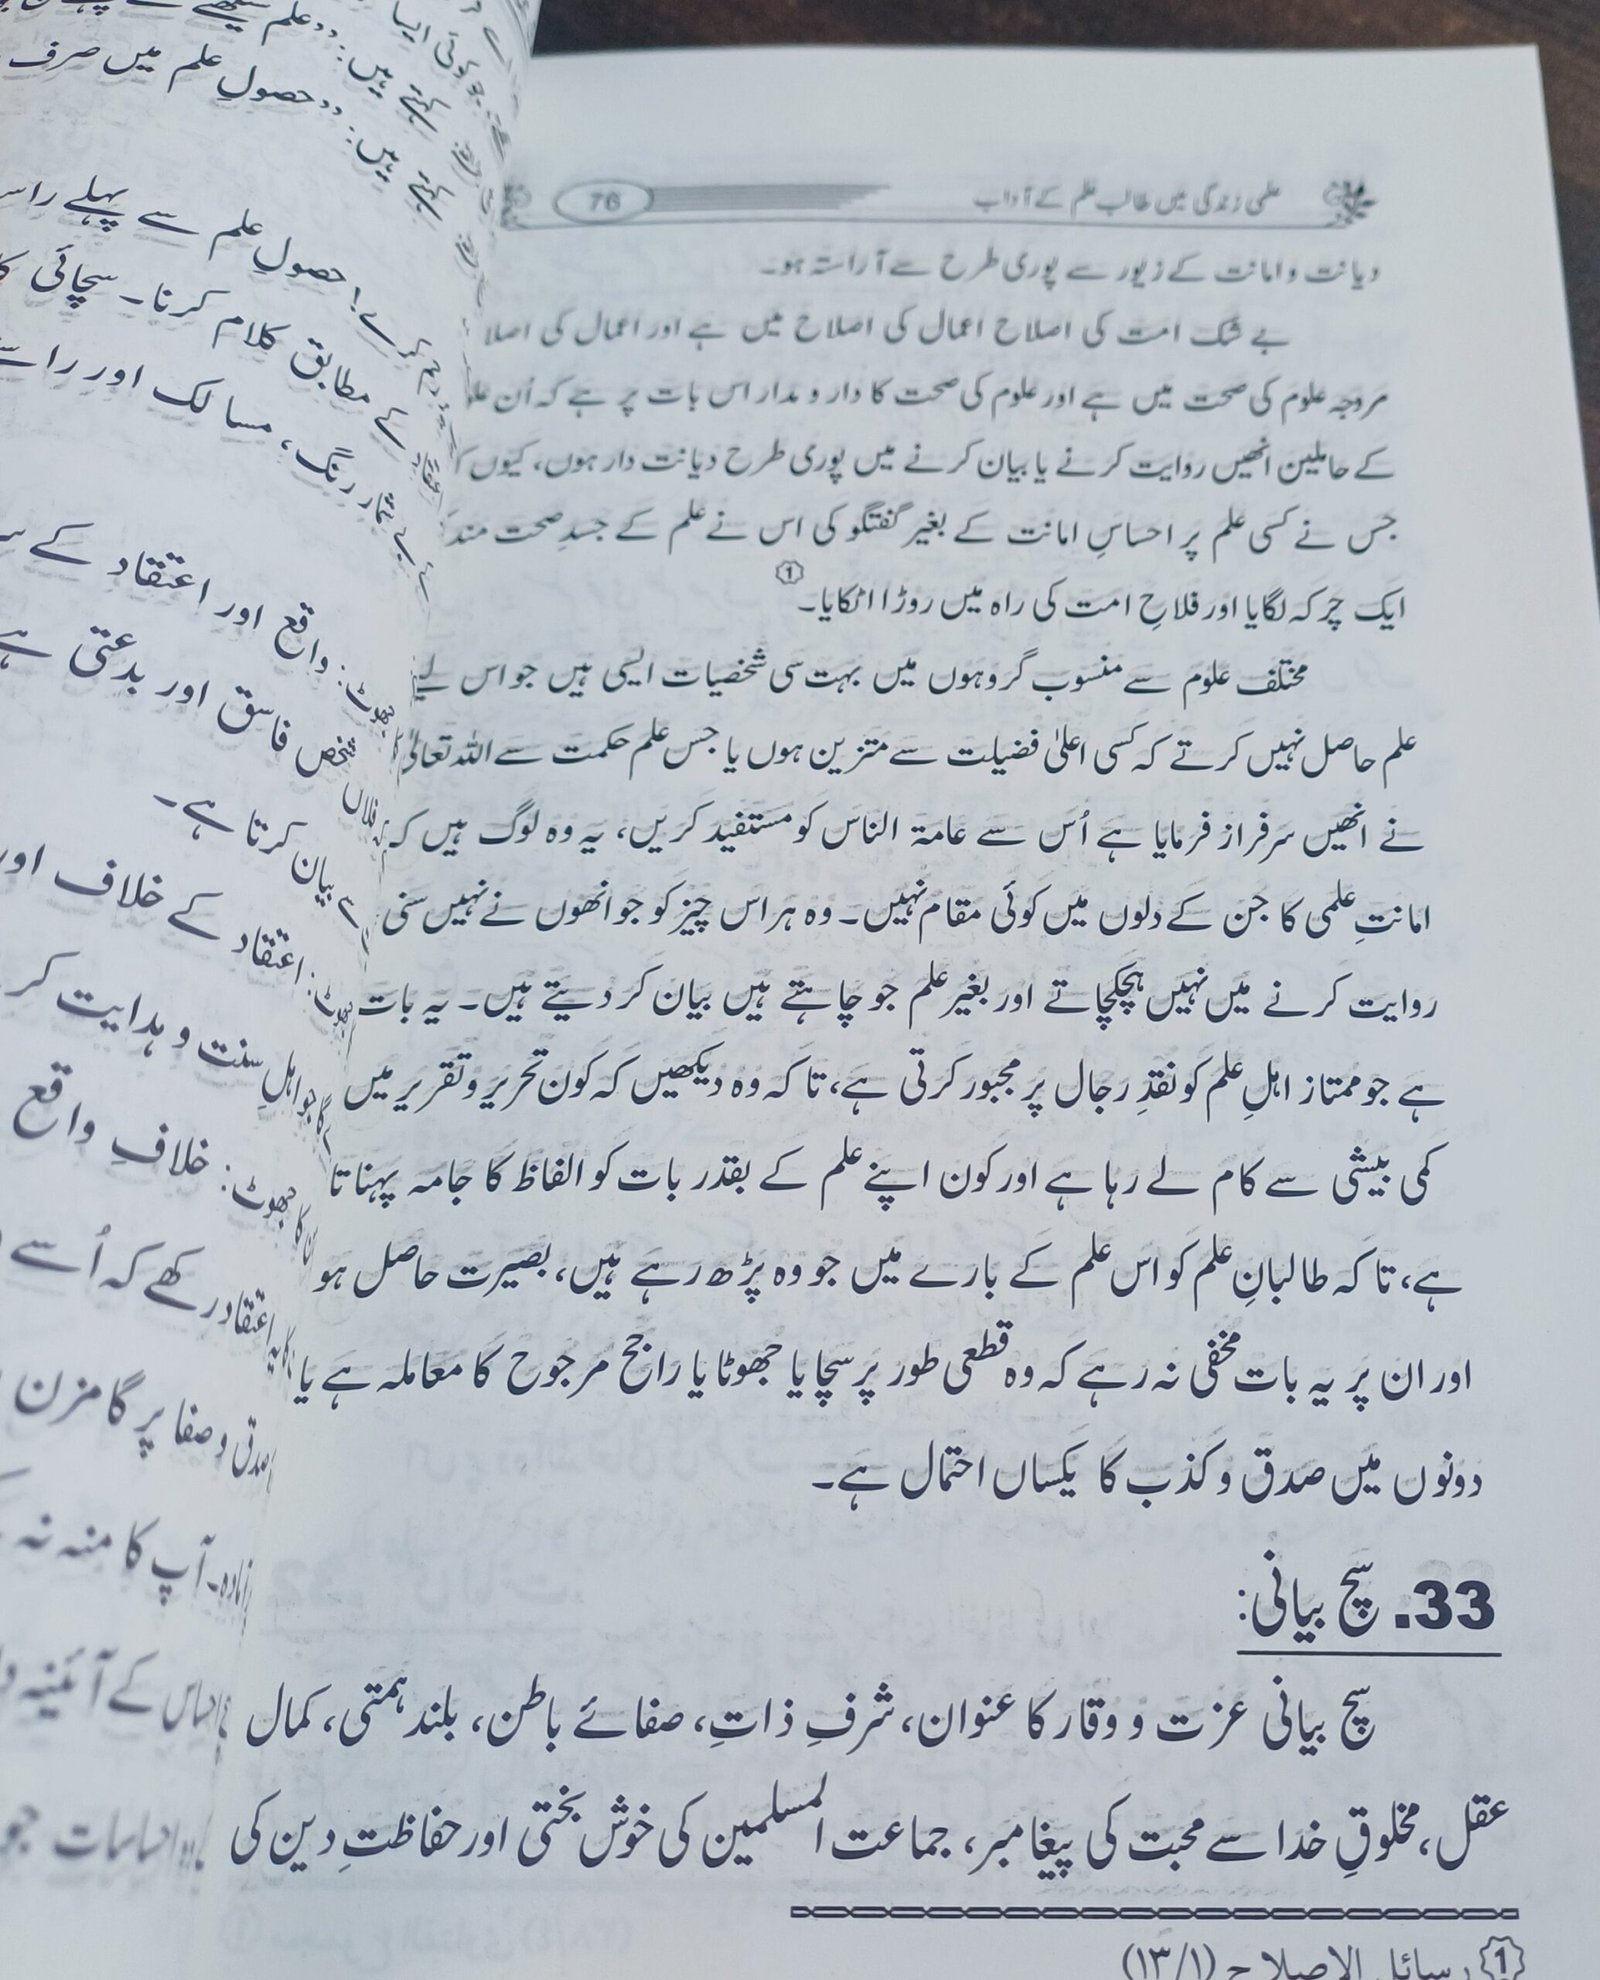 علمی زندگی میں طالب علم کے آداب
76
دیانت و امانت کے زیور سے پوری طرح سے آراستہ ہو۔
بے شک امت کی اصلاح اعمال کی اصلاح میں ہے اور اعمال کی اصلا
مروجہ علوم کی صحت میں ہے اور علوم کی صحت کا دار و مدار اس بات پر ہے کہ اُن علو
کے حاملین انھیں روایت کرنے یا بیان کرنے میں پوری طرح دیانت دار ہوں، کیوں ک
جس نے کسی علم پر احساسِ امانت کے بغیر گفتگو کی اس نے علم کے جسدِ صحت مند
ایک چرکہ لگایا اور فلاحِ امت کی راہ میں روڑا اٹکایا۔ ①
مختلف علوم سے منسوب گروہوں میں بہت سی شخصیات ایسی ہیں جو اس لیے
علم حاصل نہیں کرتے کہ کسی اعلیٰ فضیلت سے متزین ہوں یا جس علم حکمت سے اللہ تعالیٰ
نے انھیں سرفراز فرمایا ہے اُس سے عامۃ الناس کو مستفید کریں، یہ وہ لوگ ہیں کہ
امانتِ علمی کا جن کے دلوں میں کوئی مقام نہیں۔ وہ ہر اس چیز کو جو انھوں نے نہیں سنی
روایت کرنے میں نہیں ہچکچاتے اور بغیر علم جو چاہتے ہیں بیان کر دیتے ہیں۔ یہ بات
ہے جو ممتاز اہلِ علم کو نقدِ رجال پر مجبور کرتی ہے، تاکہ وہ دیکھیں کہ کون تحریر و تقریر میں
کمی بیشی سے کام لے رہا ہے اور کون اپنے علم کے بقدر بات کو الفاظ کا جامہ پہناتا
ہے، تاکہ طالبانِ علم کو اس علم کے بارے میں جو وہ پڑھ رہے ہیں، بصیرت حاصل ہو
اور ان پر یہ بات مخفی نہ رہے کہ وہ قطعی طور پر سچا یا جھوٹا یا راجح مرجوح کا معاملہ ہے یا
دونوں میں صدق و کذب کا یکساں احتمال ہے۔
33. سچ بیانی:
سچ بیانی عزت و وقار کا عنوان، شرفِ ذاتِ، صفائے باطن، بلند ہمتی، کمال
عقل، مخلوقِ خدا سے محبت کی پیغامبر، جماعت المسلمین کی خوش بختی اور حفاظتِ دین کی
① رسائل الإصلاح (۱۳/۱)
کہتے ہیں: ”علم
کہتے ہیں: ”حصولِ علم میں صرف
حصولِ علم سے پہلے
کے مطابق کلام کرنا۔ سچائی
رنگ، مسالک اور
جھوٹ: واقع اور اعتقاد کے
فلاں شخص فاسق اور بدعتی ہے
بیان کرتا ہے۔
جھوٹ: اعتقاد کے خلاف اور
جو اہلِ سنت و ہدایت
جھوٹ: خلافِ واقع
اعتقاد رکھے کہ اُسے
صدق و صفا پر گامزن
آپ کا منہ نہ
احساس کے آئینہ
احساسات جو